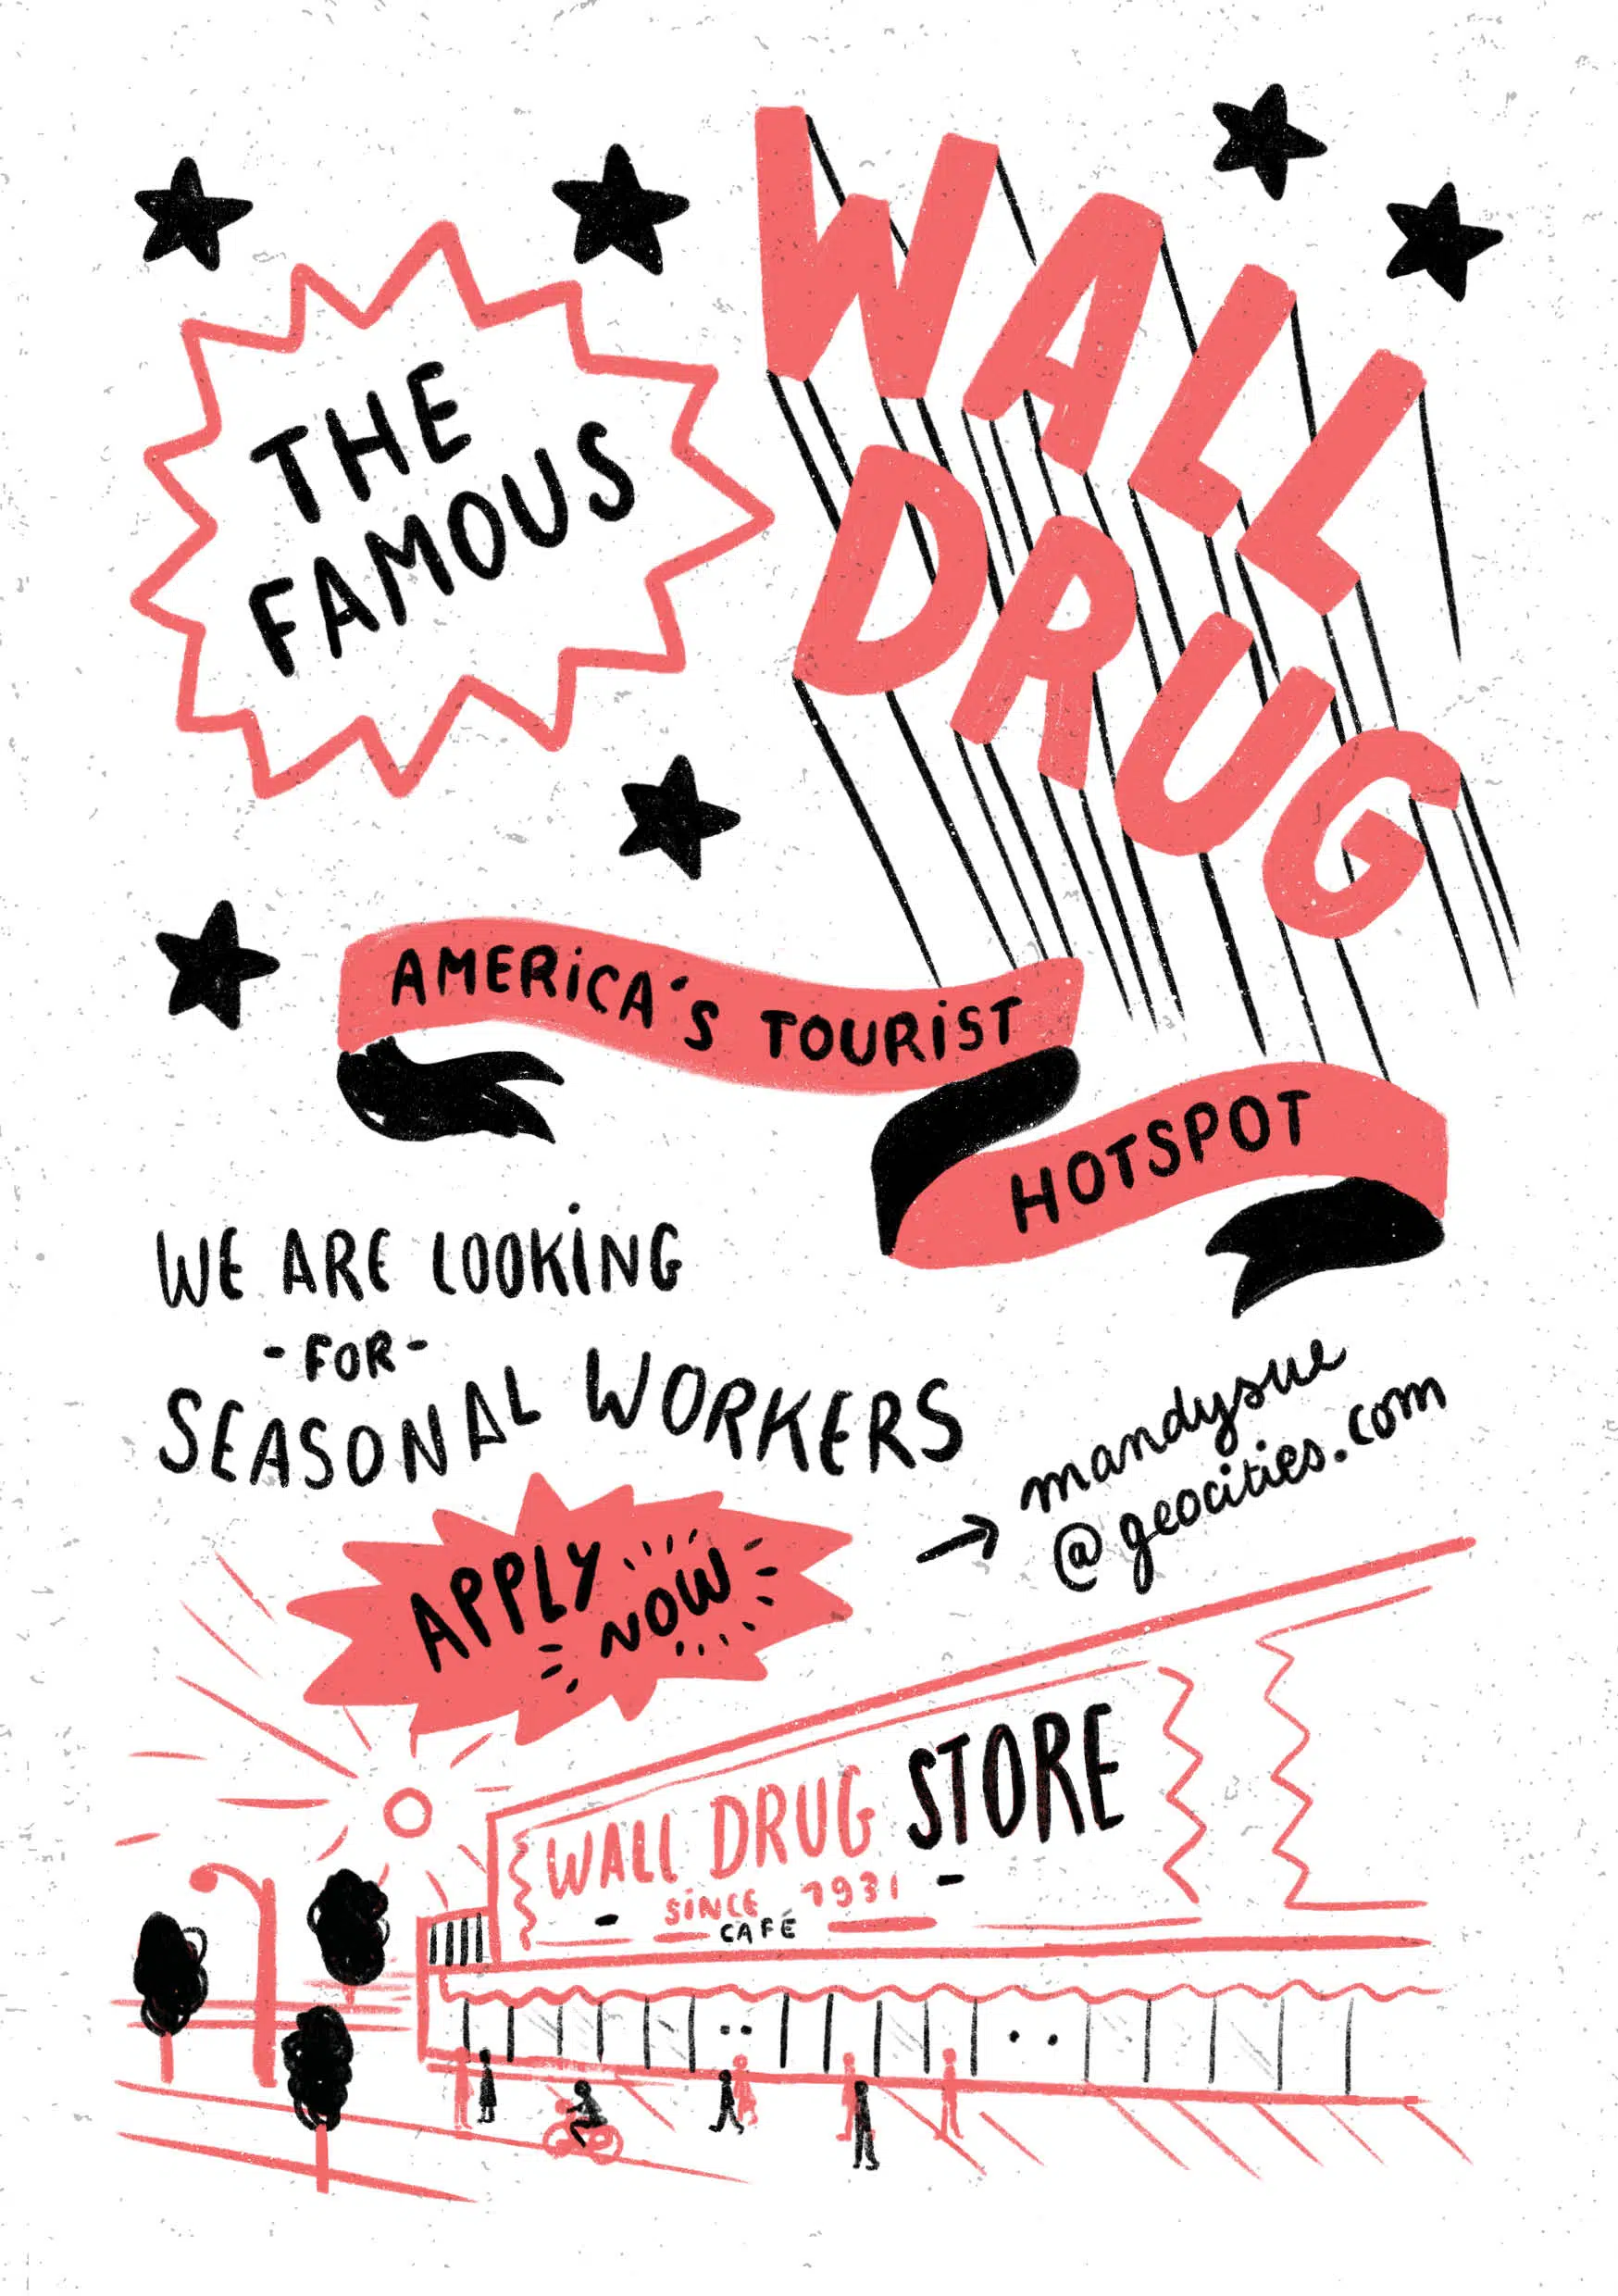 THE
FAMOUS
WALL
DRUG
AMERiCA'S TOURiST
HOTSPOT
WE ARE LOOKiNG
-FOR-
SEASONAL WORKERS
mandysue
@geocities.com
APPLY
NOW
WALL DRUG STORE
SiNCE 1931
CAFÉ